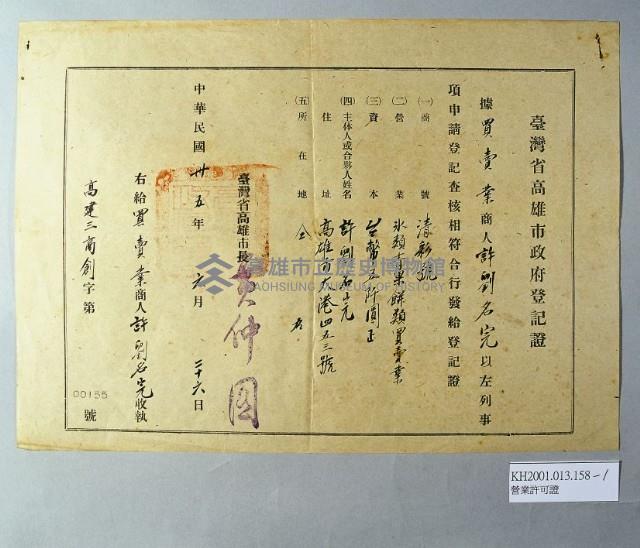 臺灣省高雄市政府登記證
據買賣業商人許劉名完以左列事
項申請登記查核相符合行發給登記證
㈠商號 清彩號
㈡營業 氷類青果餅類買賣業
㈢資本 台幣五仟圓正
㈣主体人或合夥人姓名 許劉名完
住址 高雄市 港四五三號
㈤所在地 仝 右
臺灣省高雄市長 黃仲圖
中華民國卅五年六月二十六日
右給買賣業商人許劉名完收執
高建三商創字第 00155 號
高雄市立歷史博物館
KAOHSIUNG MUSEUM OF HISTORY
KH2001.013.158-1
營業許可證